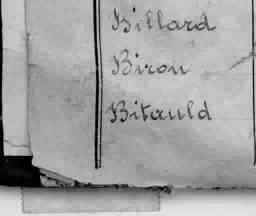 Billard
Biron
Bitauld